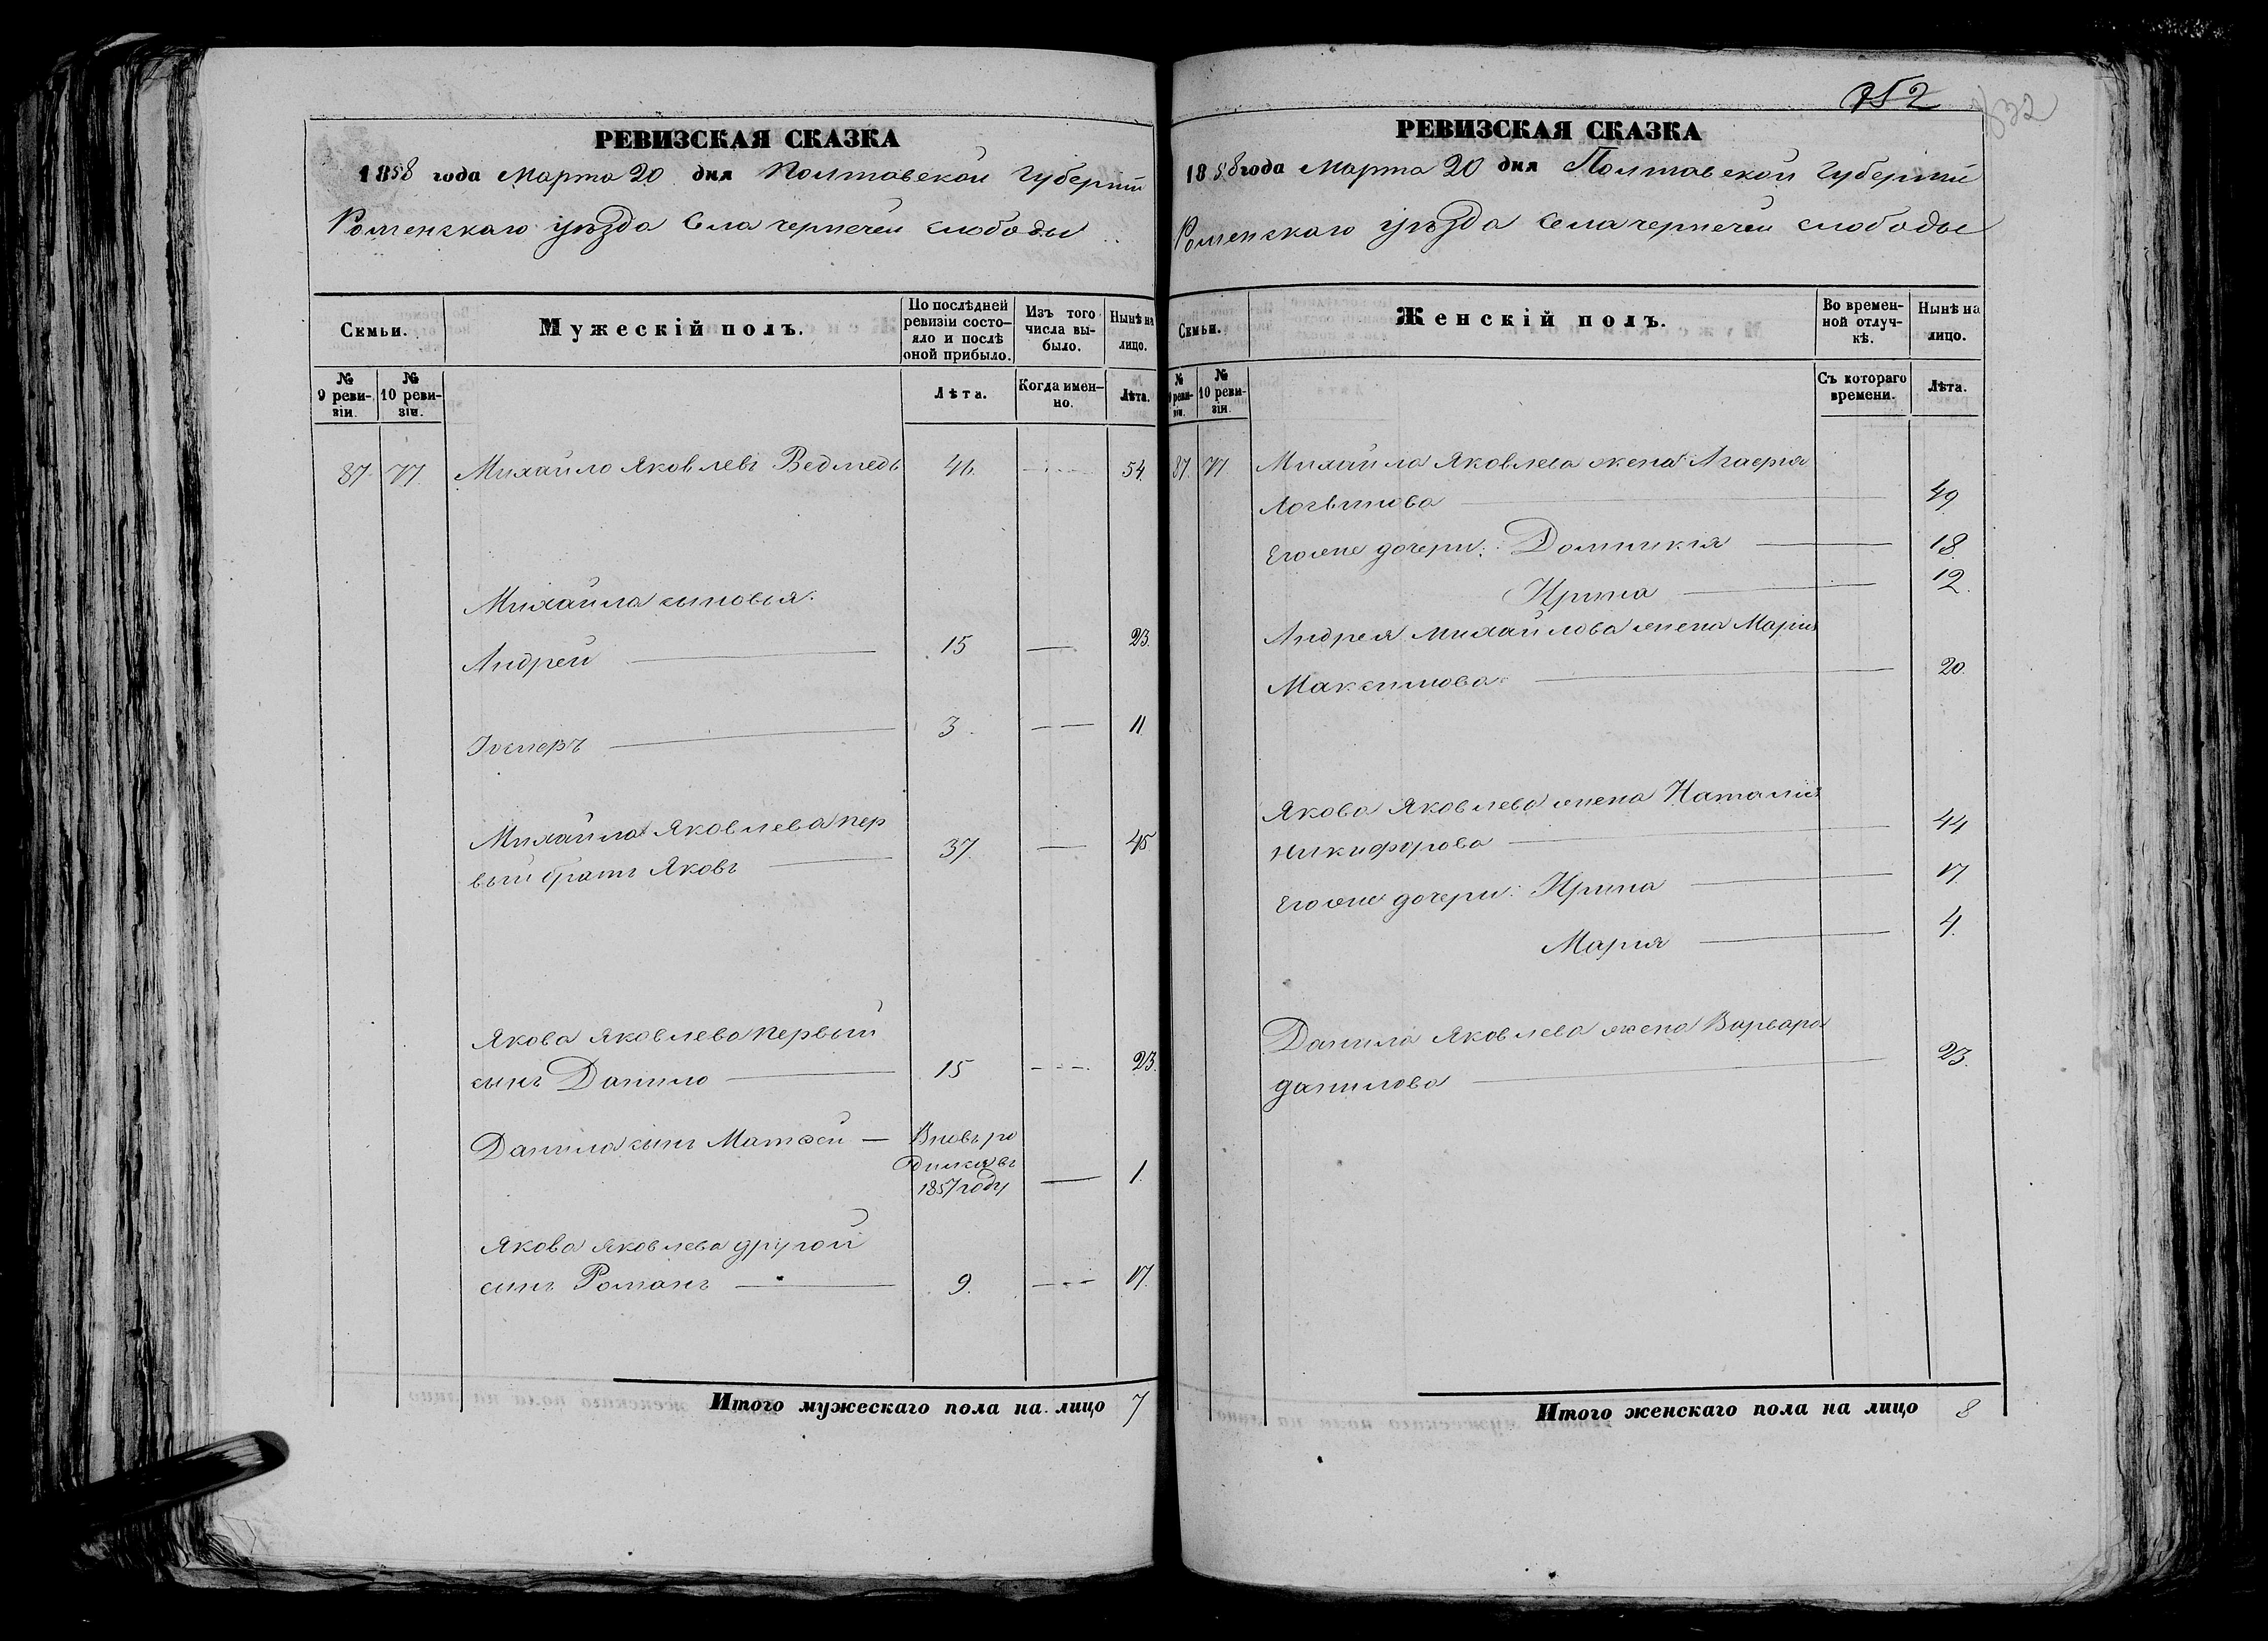 РЕВИЗСКАЯ СКАЗКА
1858 года Марта 20 дня Полтавской Губерніи
Роменскаго уѣзда села чернечей слободы
Семьи.
Мужескій полъ.
По послѣдней ревизіи состо-
яло и послѣ оной прибыло.
Изъ того числа вы-
было.
Нынѣ на лицо.
№ 9 реви-
зіи.
№ 10 реви-
зіи.
Лѣта.
Когда имен-
но.
Лѣта.
87. 77. Михайло Яковлевъ Ведмедь 46. 54.
Михайла сыновья:
Андрей 15 23.
Іосифъ 3. 11
Михайла Яковлева пер
вый братъ Яковъ 37. 45
Якова Яковлева первый
сынъ Данило 15 23.
Данила сынъ Матвей Вновь ро
дился въ
1857 году 1.
Якова Яковлева другой
сынъ Романъ 9. 17.
Итого мужескаго пола на лицо 7
752
РЕВИЗСКАЯ СКАЗКА
1858 года Марта 20 дня Полтавской Губерніи
Роменскаго уѣзда села чернечей слободы
Семьи.
Женскій полъ.
Во времен-
ной отлуч-
кѣ.
Нынѣ на лицо.
№ 9 реви-
зіи.
№ 10 реви-
зіи.
Съ котораго времени.
Лѣта.
87. 77. Михайла Яковлева жена
Логвинова 49
Его же дочери: Домникія 18.
Ирина 12.
Андрея Михайлова жена Марія
Максимова 20.
Якова Яковлева жена Наталія
Никифорова 44
Его же дочери: Ирина 17.
Марія 4.
Данила Яковлева жена Варвара
Данилова 23.
Итого женскаго пола на лицо 8